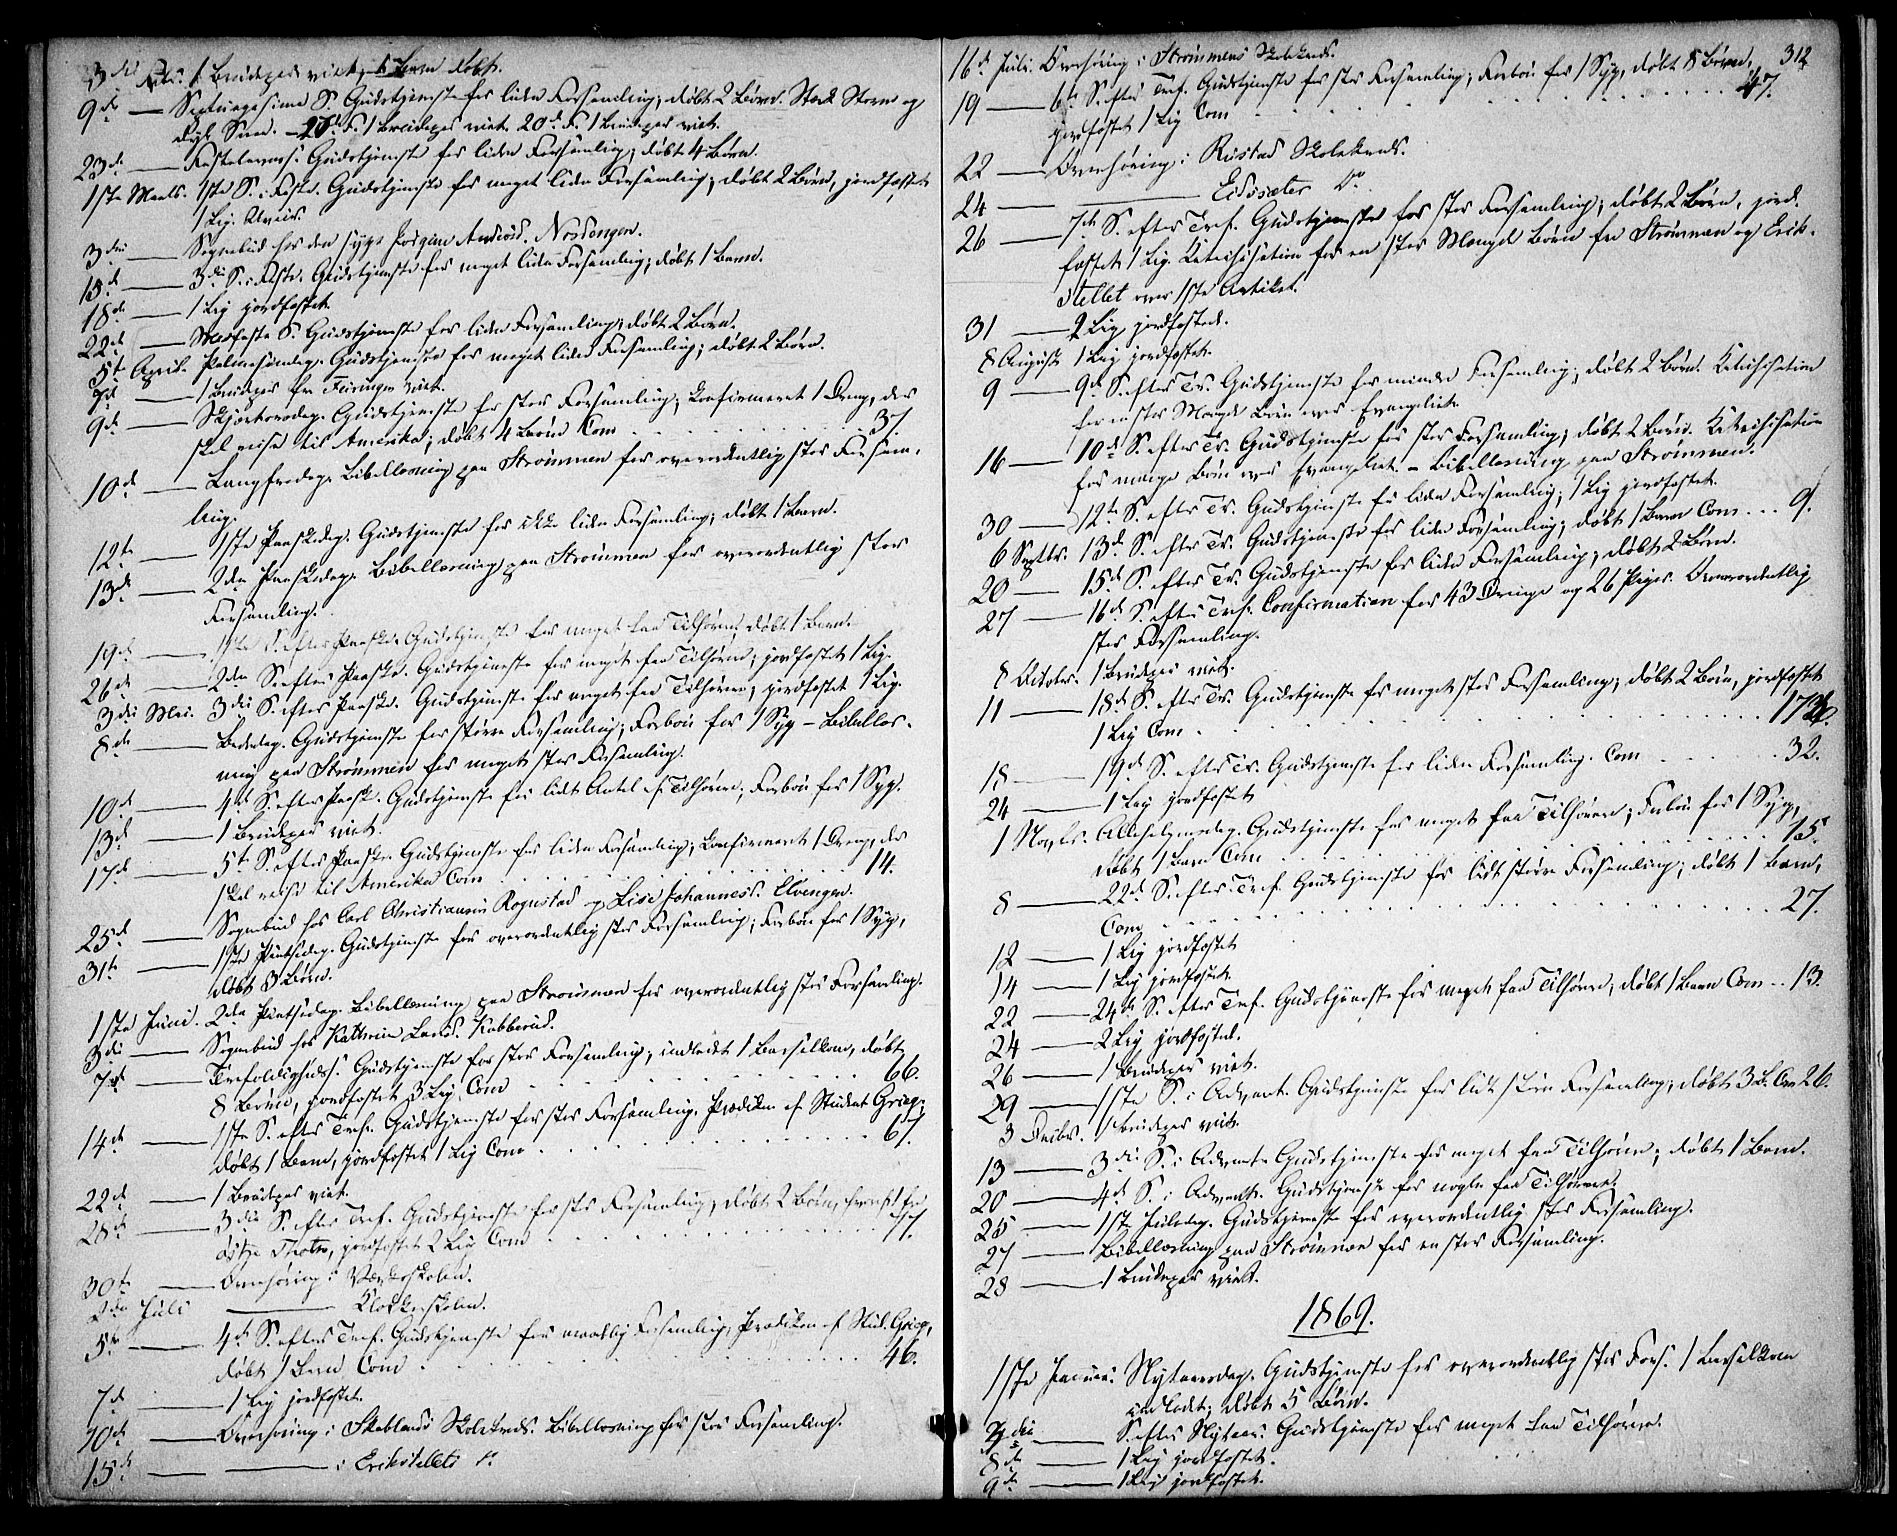 3die Febr. 1 Brudepar viet, 1 Barn døbt.
9de — Septuagesima S. Gudstjeneste for liden Forsamling; døbt 2 Børn. Stærk Storm og
Snee. — 20de F. 1 Brudepar viet.
23de — Fastelavnss. Gudstjeneste for liden Forsamling; døbt 4 Børn.
1ste Marts. 1ste S. i Faste. Gudstjeneste for meget liden Forsamling; døbt 2 Børn, jordfæstet
1 Lig.
3die — Sognebud hos den syge Jørgine Nordengen.
15de — 3die S. i Faste. Gudstjeneste for meget liden Forsamling; døbt 1 Barn.
18de — 1 Lig jordfæstet.
22de — Midfaste S. Gudstjeneste for liden Forsamling; døbt 2 Børn.
5te April. Palmesøndag. Gudstjeneste for meget liden Forsamling; døbt 2 Børn.
— 1 Brudepar fra Feiringen viet.
9de — Skjærtorsdag. Gudstjeneste for stor Forsamling; Confirmeret 1 Dreng, der
skal reise til Amerika; døbt 4 Børn Com . . . 37.
10de — Langfredag. Bibellæsning paa Strømmen for overordentlig stor Forsam-
ling.
12te — 1ste Paaskedag. Gudstjeneste for ikke liden Forsamling; døbt 1 Barn.
13de — 2den Paaskedag. Bibellæsning paa Strømmen for overordentlig stor
Forsamling.
19de — 1ste S. efter Paaske. Gudstjeneste for meget faa Tilhørere; døbt 1 Barn.
26de — 2den S. efter Paaske. Gudstjeneste for meget faa Tilhørere; jordfæstet 1 Lig.
3die Mai. 3die S. efter Paaske. Gudstjeneste for meget faa Tilhørere; jordfæstet 1 Lig.
8de — Bededag. Gudstjeneste for større Forsamling; Forbøn for 1 Syg — Bibellæs-
ning paa Strømmen for meget stor Forsamling.
10de — 4de S. efter Paaske. Gudstjeneste for lidet Antal af Tilhørere; Forbøn for 1 Syg.
13de — 1 Brudepar viet.
17de — 5te S. efter Paaske. Gudstjeneste for liden Forsamling; Confirmeret 1 Dreng, der
skal reise til Amerika Com . . . 14.
25de — Sognebud hos Carl Christiansen Rognstad og Lise Johannesd. Elvengen.
31te — 1ste Pintsedag. Gudstjeneste for overordentlig stor Forsamling; Forbøn for 1 Syg,
døbt 3 Børn.
1ste Juni. 2den Pintsedag. Bibellæsning paa Strømmen for overordentlig stor Forsamling.
3die — Sognebud hos Kathrine Larsd. Kabberud.
7de — Trefoldighedss. Gudstjeneste for stor Forsamling, indledt 1 Barselkone, døbt
8 Børn, jordfæstet 3 Lig, Com . . . 66.
14de — 1ste S. efter Tref. Gudstjeneste for stor Forsamling, Prædiken af Student Grieg;
døbt 1 Barn, jordfæstet 1 Lig Com . . . 67.
22de — 1 Brudepar viet.
28de — 3die S. efter Tref. Gudstjeneste for stor Forsamling, døbt 2 Børn,
jordfæstet 2 Lig Com . . . 77.
30te — Overhøring i Værkskolen.
2den Juli — Klokkerskolen.
5te — 4de S. efter Tref. Gudstjeneste for maadelig Forsamling, Prædiken af Stud. Grieg,
døbt 1 Barn Com . . . 46.
7de — 1 Lig jordfæstet.
10de — Overhøring i Skablands Skolekreds. Bibellæsning for stor Forsamling.
15de — — i Erikstellets do
312
16de Juli. Overhøring i Strømmens Skolekreds.
19 — 6te S. efter Tref. Gudstjeneste for stor Forsamling; Forbøn for 1 Syg, døbt 8 Børn,
jordfæstet 1 Lig Com . . . 47.
22 — Overhøring i Rustad Skolekreds.
24 — — Eidsæter do
26 — 7de S. efter Tref. Gudstjeneste for stor Forsamling; døbt 2 Børn, jord-
fæstet 1 Lig. Katechisation for en stor Mængde Børn fra Strømmen og Erik-
stellet over 1ste Artikel.
31 — 2 Lig jordfæstede.
8 August 1 Lig jordfæstet.
9 — 9de S. efter Tr. Gudstjeneste for mindre Forsamling; døbt 2 Børn. Katechisation
for en stor Mængde Børn over Evangeliet.
16 — 10de S. efter Tr. Gudstjeneste for stor Forsamling; døbt 2 Børn. Katechisation
for mange Børn over Evangeliet. — Bibellæsning paa Strømmen.
30 — 12te S. efter Tr. Gudstjeneste for liden Forsamling; 1 Lig jordfæstet.
6 Septbr. 13de S. efter Tr. Gudstjeneste for liden Forsamling; døbt 1 Barn Com . . . 9.
20 — 15de S. efter Tr. Gudstjeneste for liden Forsamling; døbt 2 Børn.
27 — 16de S. efter Tref. Confirmation for 43 Drenge og 26 Piger. Overordentlig
stor Forsamling.
8 Octobr. 1 Brudepar viet.
11 — 18de S. efter Tr. Gudstjeneste for meget stor Forsamling; døbt 2 Børn, jordfæstet
1 Lig Com . . .
18 — 19de S. efter Tr. Gudstjeneste for liden Forsamling. Com . . . 32.
24 — 1 Lig jordfæstet
1 Novbr. Allehelgensdag. Gudstjeneste for meget faa Tilhørere; Forbøn for 1 Syg,
døbt 1 Barn Com . . . 15.
8 — 22de S. efter Tref. Gudstjeneste for lidt større Forsamling; døbt 1 Barn,
Com . . . 27.
12 — 1 Lig jordfæstet
14 — 1 Lig jordfæstet.
22 — 24de S. efter Tref. Gudstjeneste for meget faa Tilhørere, døbt 1 Barn Com . . 13.
24 — 2 Lig jordfæstet.
26 — 1 Brudepar viet.
29 — 1ste S. i Advent. Gudstjeneste for lidt større Forsamling; døbt 3 B. Com 26.
3 Decbr. 1 Brudepar viet.
13 — 3die S. i Advent. Gudstjeneste for meget faa Tilhørere; døbt 1 Barn.
20 — 4de S. i Advent. Gudstjeneste for nogle faa Tilhørere.
25 — 1ste Juledag. Gudstjeneste for overordentlig stor Forsamling.
27 — Bibellæsning paa Strømmen for en stor Forsamling.
28 — 1 Brudepar viet.
1869.
1ste Januar. Nytaarsdag. Gudstjeneste for overordentlig stor Fors. 1 Barselkone
indledt; døbt 5 Børn.
3die — S. efter Nytaar. Gudstjeneste for meget faa Tilhørere.
8de — 1 Lig jordfæstet.
9de — 1 Lig jordfæstet.